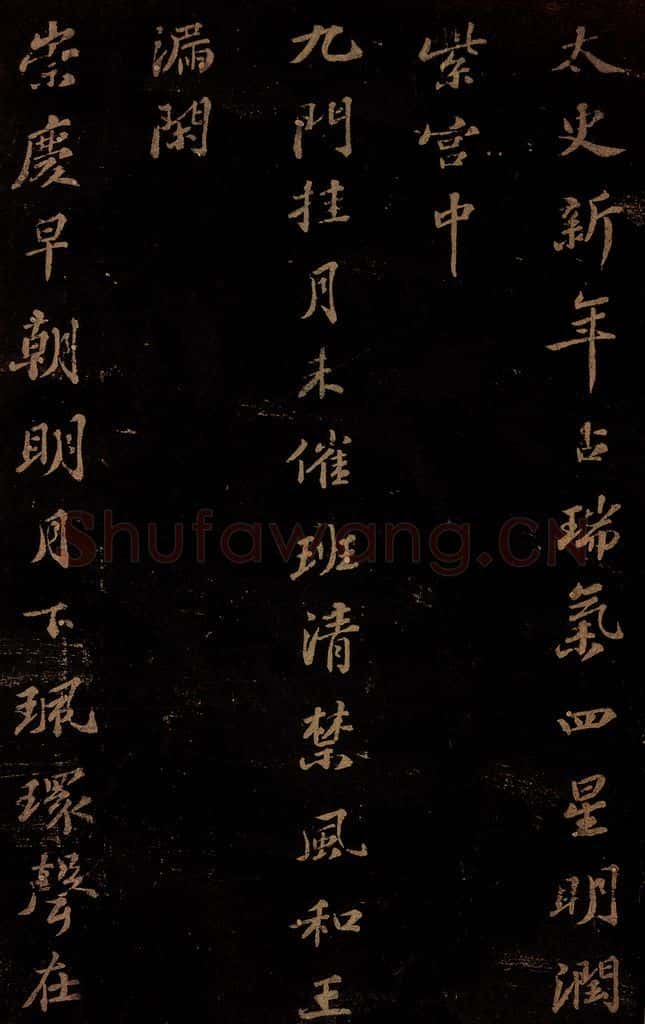 太史新年占瑞氣四星明潤
紫宮中
九門挂月未催班清禁風和玉
漏閑
崇慶早朝明月下珮環聲在
Shufawang.CN